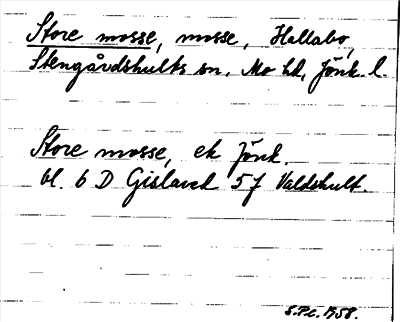 Store mosse, mosse, Hallabo,
Stengårdshults sn, Mo hd, Jönk. l.
Store mosse, ek Jönk.
bl. 6 D Gislaved 5 f Valdshult.
S.Pc. 1958.